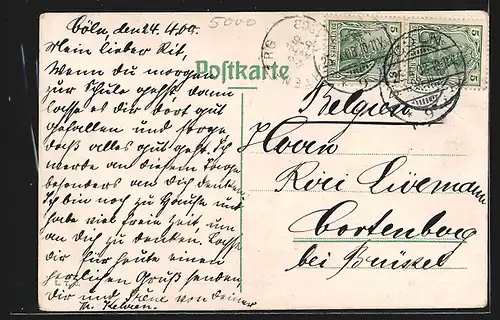 5000
Cöln, den 24.4.09.
Mein lieber
Wenn du morgen
zur Schule gehst dann
lasse es dir dort gut
gefallen und sorge
daß alles gut geht. Ich
werde an diesem Tage
besonders an dich denken.
Ich bin noch zu Hause und
habe viel freie Zeit, um
an dich zu denken. Lasse
dir für heute einen
herzlichen Gruß senden
Dir und Irene von deiner
Postkarte
Belgien
Herrn
Cortenberg
bei Brüssel